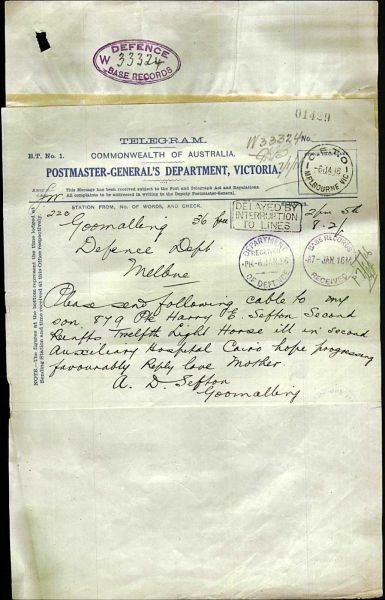 DEFENCE
W 33324
BASE RECORDS
01429
TELEGRAM.
W33324 No.
B.T. No. 1.
COMMONWEALTH OF AUSTRALIA.
POSTMASTER-GENERAL'S DEPARTMENT, VICTORIA.
This Message has been received subject to the Post and Telegraph Act and Regulations.
All complaints to be addressed in writing to the Deputy Postmaster-General.
STATION FROM, No. OF WORDS, AND CHECK.
MELBOURNE VIC.
-6 JA 16
DELAYED BY
INTERRUPTION
TO LINES
220
Goomalling 36
8.21
Defence Dept
Melbne
DEPARTMENT
RECEIVED
OF DEFENCE
BASE RECORDS
-7 JAN 16
RECEIVED
Please send following cable to my
son. 879 Pte Harry E. Sefton Second
Reinfts Twelfth Light Horse ill in second
Auxiliary Hospital Cairo hope progressing
favourably Reply love Mother.
A. D. Sefton
Goomalling
NOTE.—The figures at the bottom represent the time lodged at
Sending Station and time received at this Office respectively.